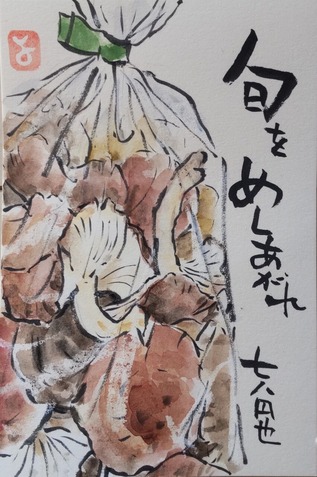 旬をめしあがれ
七八円也